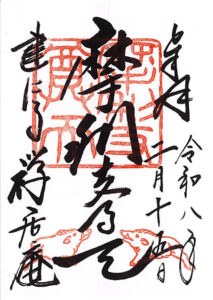 奉拝
令和八年
二月十五日
摩利支尊天
建仁寺
禅居庵